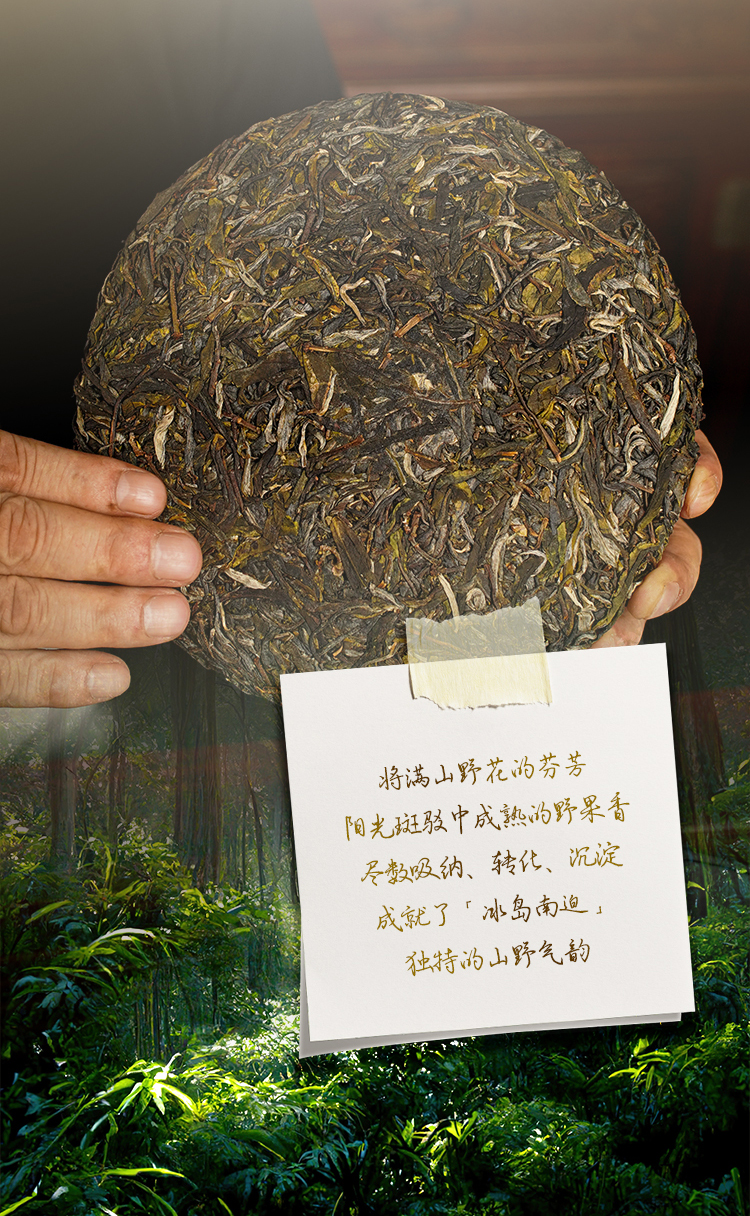 将满山野花的芬芳
阳光斑驳中成熟的野果香
尽数吸纳、转化、沉淀
成就了「冰岛南迫」
独特的山野气韵